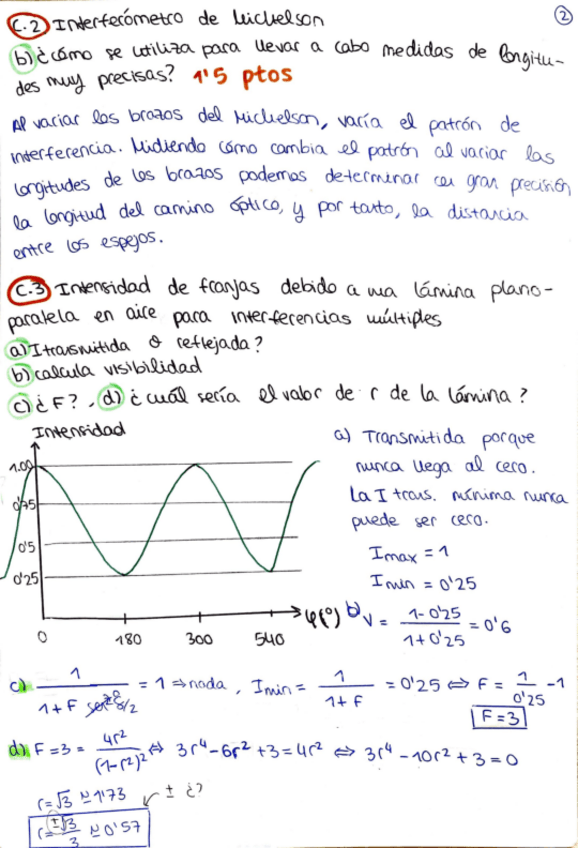 C.2 Interferómetro de Michelson
2
b) ¿cómo se utiliza para llevar a cabo medidas de longitu-
des muy precisas? 1'5 ptos
Al variar los brazos del Michelson, varía el patrón de
interferencia. Midiendo cómo cambia el patrón al variar las
longitudes de los brazos podemos determinar con gran precisión
la longitud del camino óptico, y por tanto, la distancia
entre los espejos.
C.3 Intensidad de franjas debido a una lámina plano-
paralela en aire para interferencias múltiples
a) I transmitida o reflejada?
b) calcula visibilidad
c) ¿F?, d) ¿cuál sería el valor de r de la lámina?
Intensidad
1.00
0'75
0'5
0'25
0
180
300
540
φ(°)
a) Transmitida porque
nunca llega al cero.
La I trans. mínima nunca
puede ser cero.
Imax = 1
Imin = 0'25
b) V = (1-0'25)/(1+0'25) = 0'6
c) 1/(1+F sen²δ/2) = 1 ⇒ nada, Imin = 1/(1+F) = 0'25 ⇔ F = 1/0'25 - 1
F=3
d) F=3 = 4r²/(1-r²)² ⇔ 3r⁴-6r²+3=4r² ⇔ 3r⁴-10r²+3=0
r=√3 ≃ 1'73 ± ¿?
r=±√3/3 ≃ 0'57